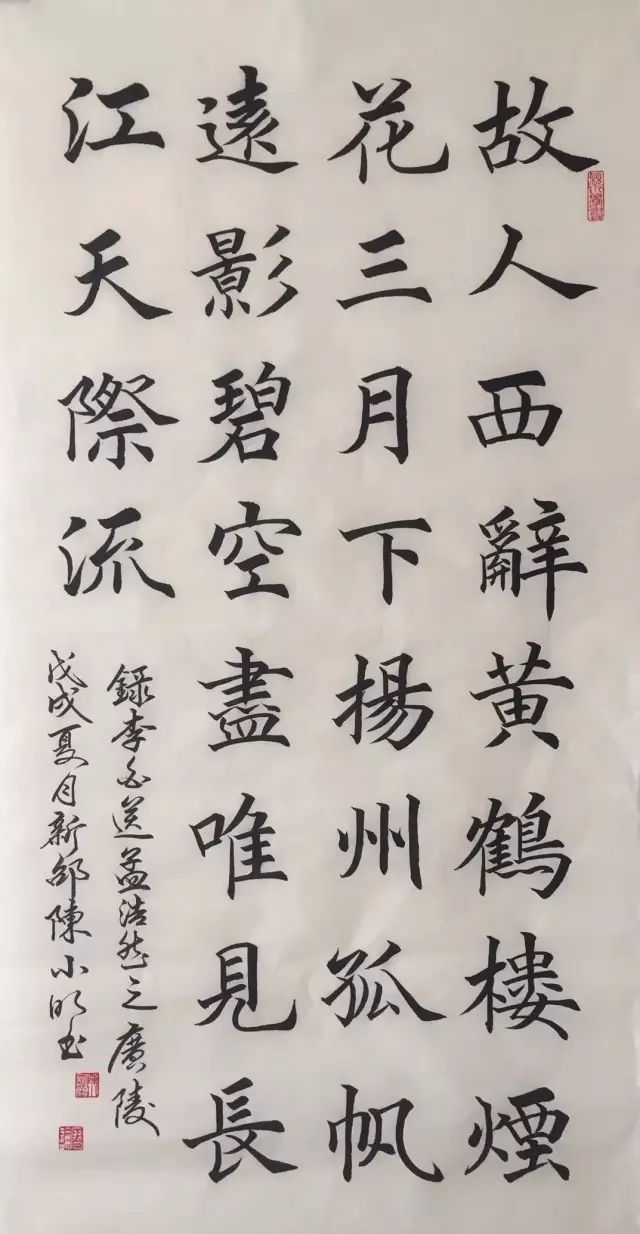 故人西辭黃鶴樓煙
花三月下揚州孤帆
遠影碧空盡唯見長
江天際流
錄李白送孟浩然之廣陵
戊戌夏月新邵陳小明書